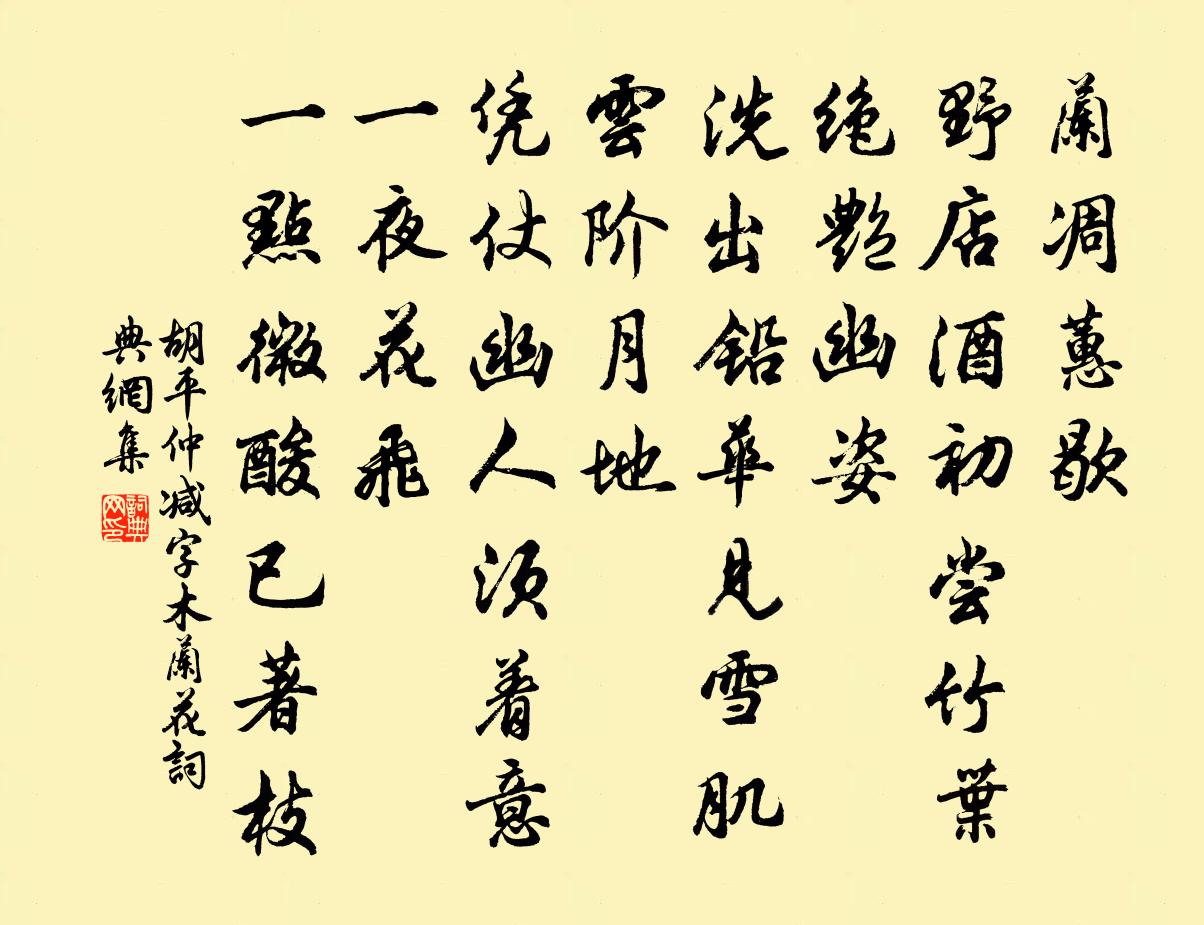 蘭凋蕙歇
野店酒初尝竹葉
绝艷幽姿
洗出铅華見雪肌
雲阶月地
凭仗幽人须着意
一夜花飛
一點微酸已著枝
胡平仲减字木蘭花詞
典網集
詞典网印